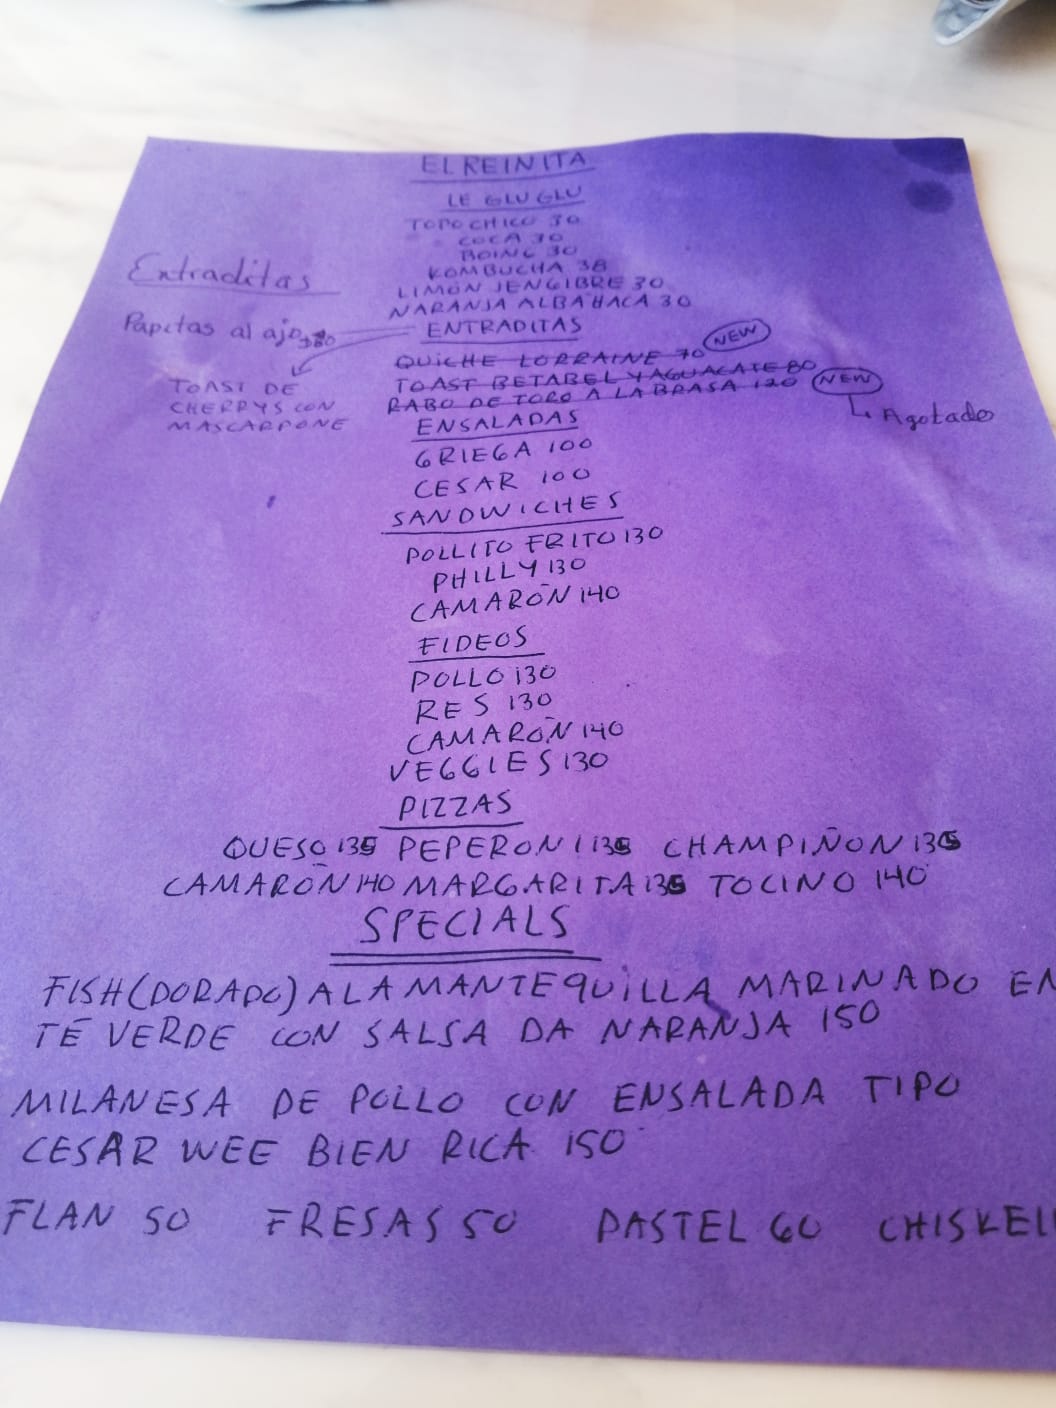 EL REINITA
LE GLU GLU
TOPOCHICO 30
COCA 30
BOING 30
KOMBUCHA 38
LIMÓN JENGIBRE 30
NARANJA ALBAHACA 30
Entraditas
Papitas al ajo $80
TOAST DE
CHERRYS CON
MASCARPONE
ENTRADITAS
QUICHE LORRAINE 70 NEW
TOAST BETABEL Y AGUACATE 80
RABO DE TORO A LA BRASA 120 NEW
Agotado
ENSALADAS
GRIEGA 100
CESAR 100
SANDWICHES
POLLITO FRITO 130
PHILLY 130
CAMARÓN 140
FIDEOS
POLLO 130
RES 130
CAMARÓN 140
VEGGIES 130
PIZZAS
QUESO 135 PEPERONI 135 CHAMPIÑON 135
CAMARÓN 140 MARGARITA 135 TOCINO 140
SPECIALS
FISH (DORADO) A LA MANTEQUILLA MARINADO EN
TÉ VERDE CON SALSA DA NARANJA 150
MILANESA DE POLLO CON ENSALADA TIPO
CESAR WEE BIEN RICA 150
FLAN 50 FRESAS 50 PASTEL 60